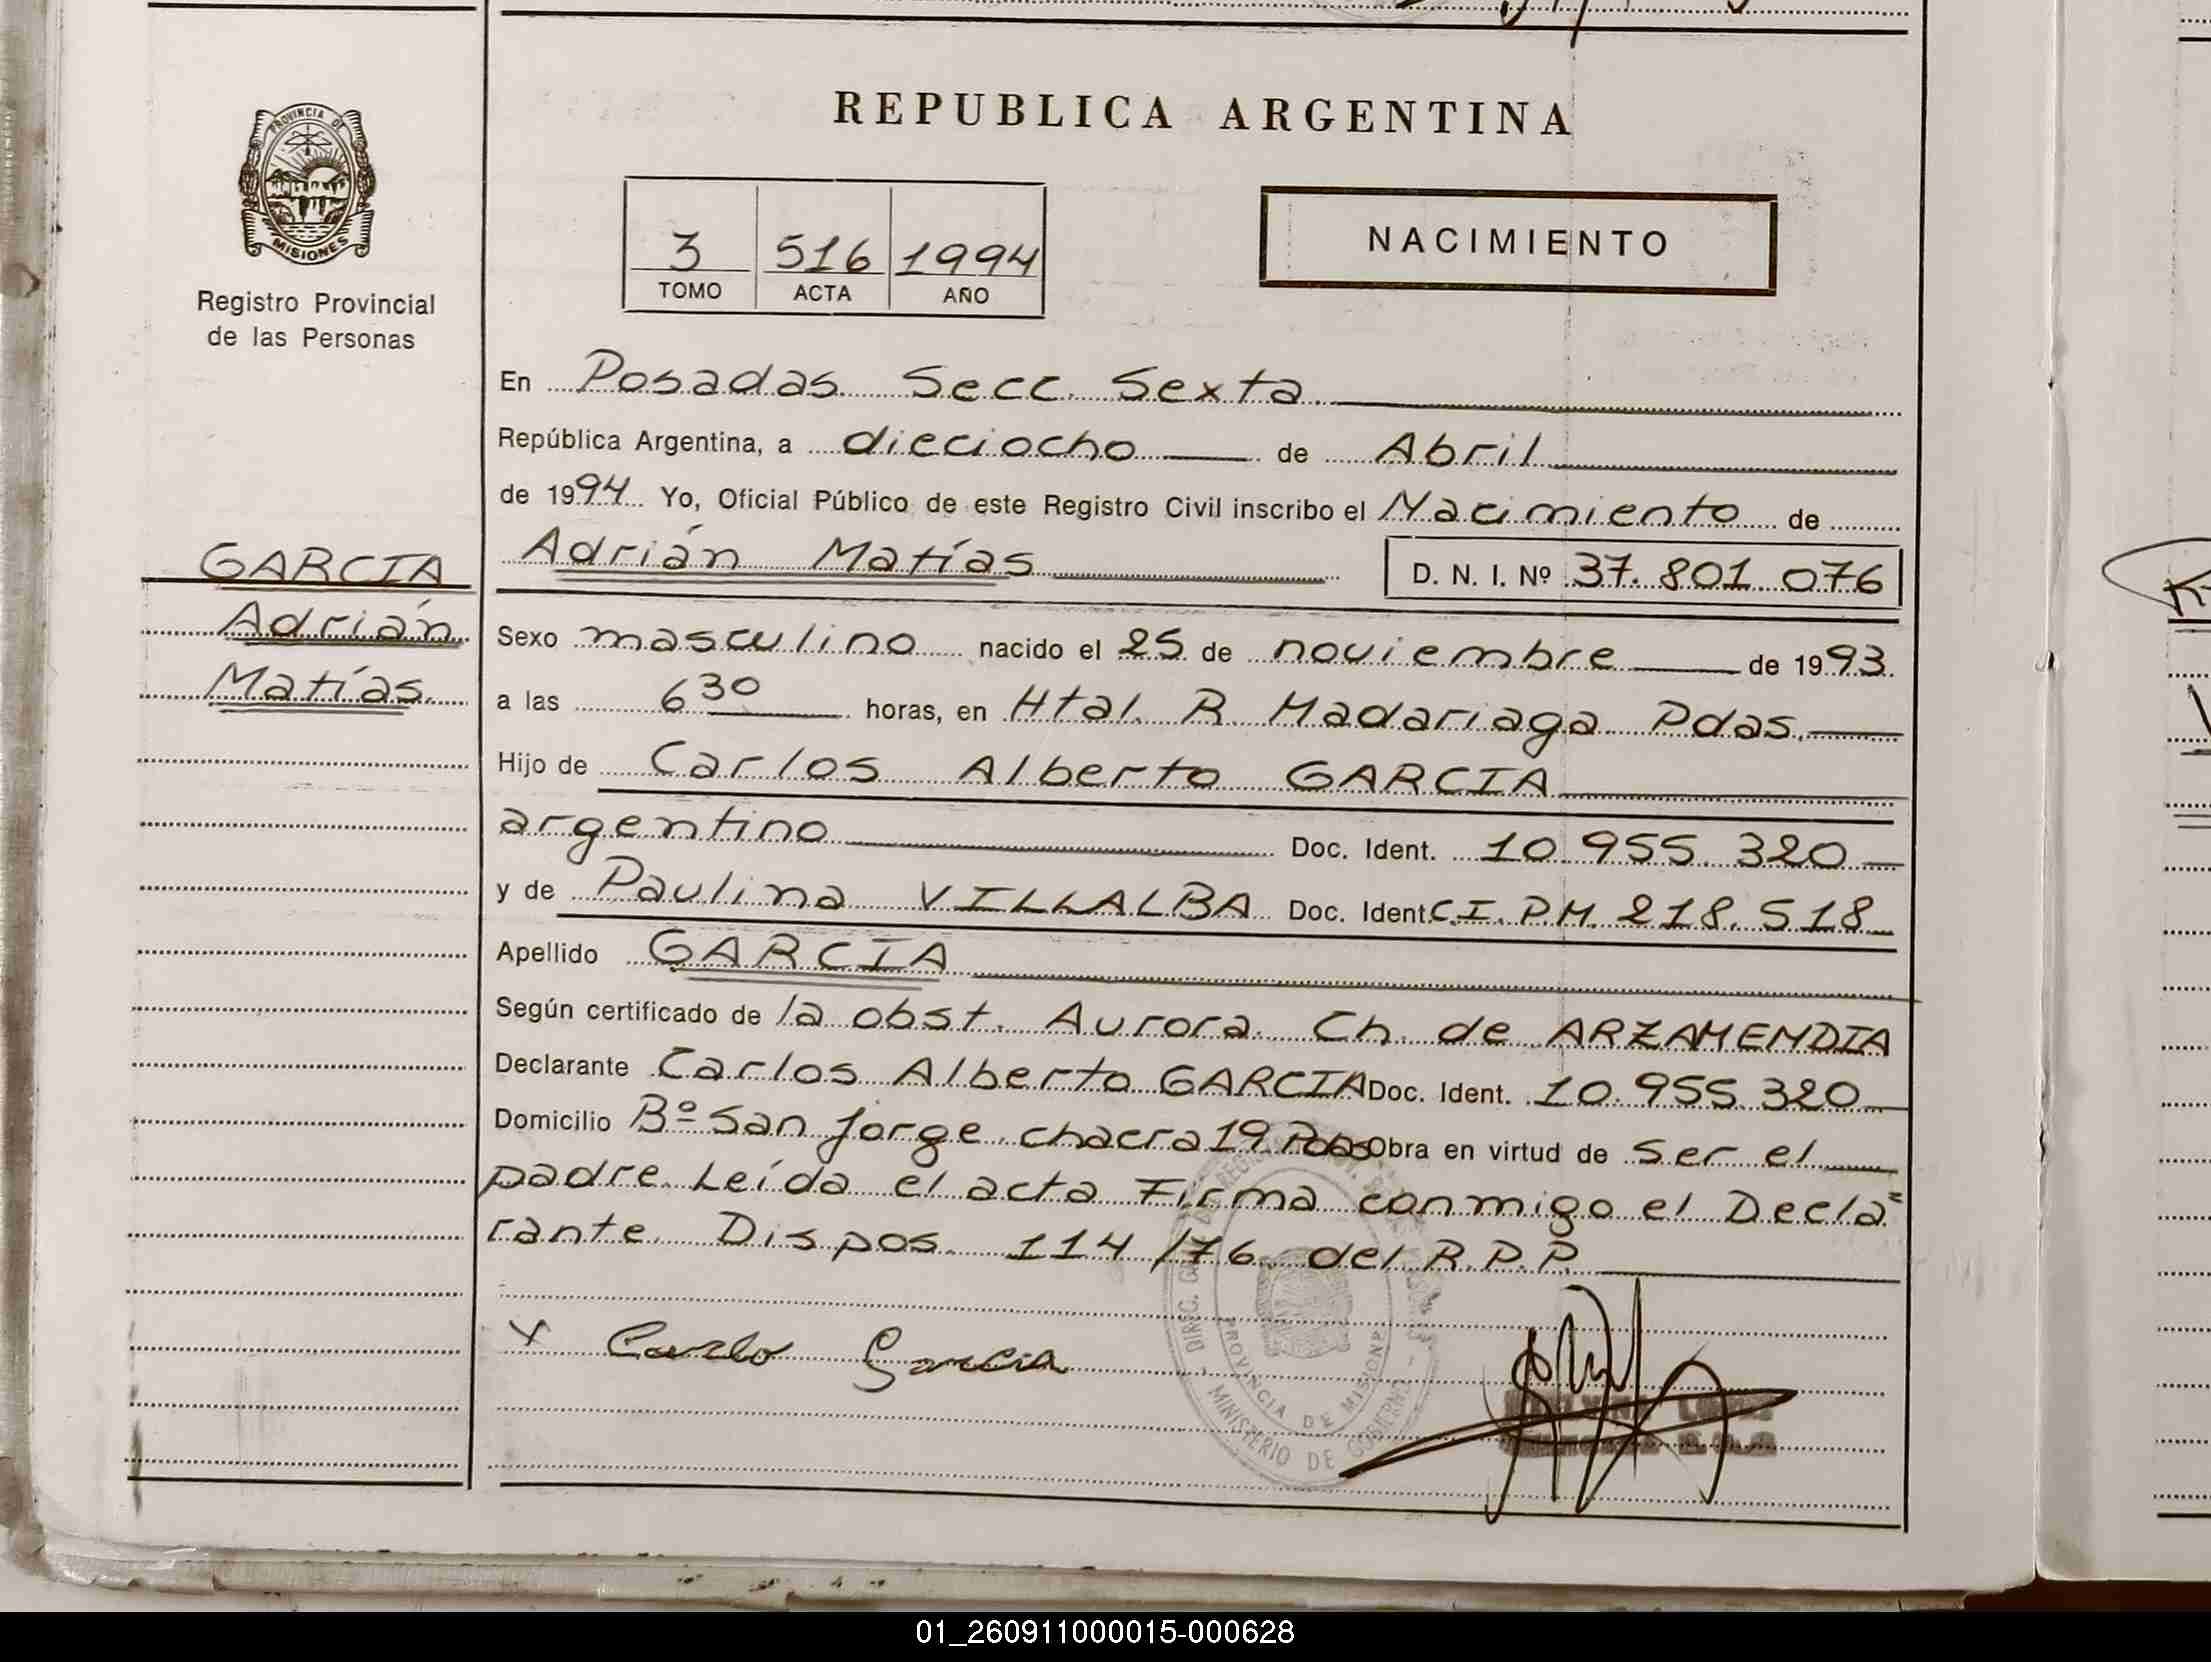 REPUBLICA ARGENTINA
PROVINCIA DE
MISIONES
Registro Provincial
de las Personas
3 516 1994
TOMO ACTA AÑO
NACIMIENTO
En Posadas Secc. Sexta
República Argentina, a dieciocho de Abril
de 1994 Yo, Oficial Público de este Registro Civil inscribo el Nacimiento de
Adrián Matías D. N. I. Nº 37.801.076
GARCIA
Adrián
Matías.
Sexo masculino nacido el 25 de noviembre de 1993.
a las 6 30 horas, en Htal. R. Madariaga Pdas.
Hijo de Carlos Alberto GARCIA
argentino Doc. Ident. 10.955.320
y de Paulina VILLALBA Doc. Ident. C.I.P.M. 218.518
Apellido GARCIA
Según certificado de la obst. Aurora Ch. de ARZAMENDIA
Declarante Carlos Alberto GARCIA Doc. Ident. 10.955.320
Domicilio Bº San Jorge chacra 19 Pdas Obra en virtud de ser el
padre. Leída el acta Firma conmigo el Decla=
rante. Dispos. 114/76 del R.P.P.
x Carlo Garcia
PROVINCIA DE MISIONES
MINISTERIO DE GOBIERNO
01_260911000015-000628